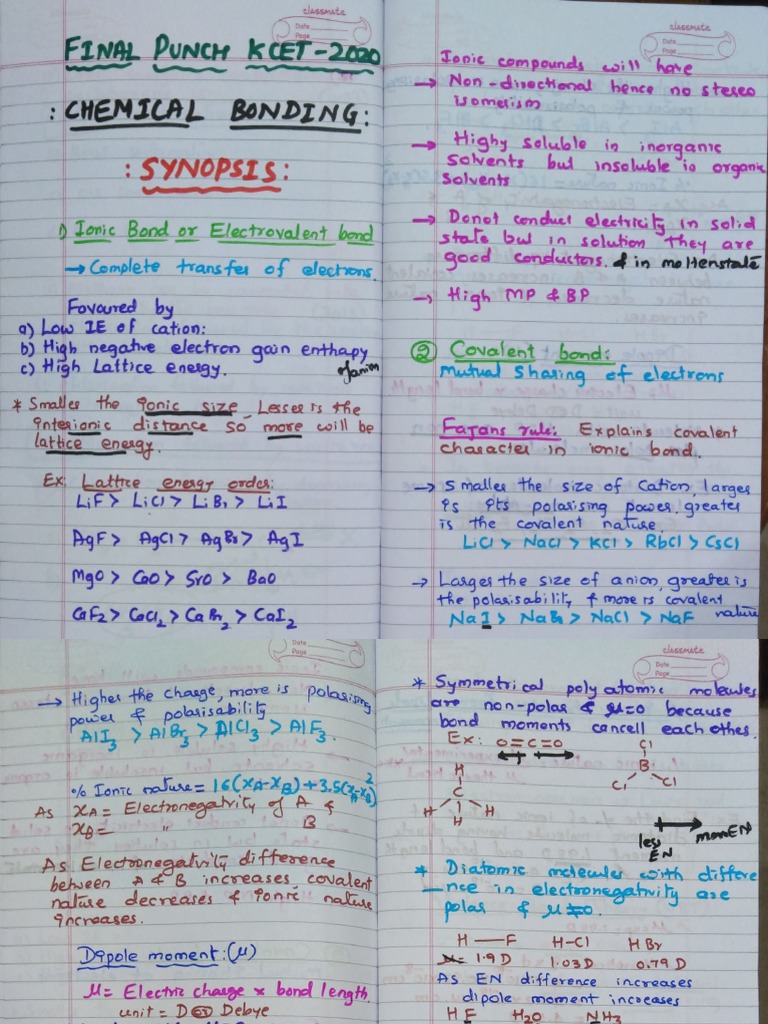 classmate
Date
Page
FINAL PUNCH KCET-2020
: CHEMICAL BONDING:
: SYNOPSIS:
1) Ionic Bond or Electrovalent bond
→ Complete transfer of electrons.
Favoured by
a) Low IE of cation:
b) High negative electron gain enthapy
of anion
c) High Lattice energy.
* Smaller the ionic size, Lesser is the
interionic distance so more will be
lattice energy.
Ex: Lattice energy order:
LiF > LiCl > LiBr > LiI
AgF > AgCl > AgBr > AgI
MgO > CaO > SrO > BaO
CaF2 > CaCl2 > CaBr2 > CaI2
classmate
Date
Page
Ionic compounds will have
→ Non-directional hence no stereo
isomerism
→ Highy soluble in inorganic
solvents but insoluble in organic
solvents
→ Donot conduct electricity in solid
state but in solution they are
good conductors. & in moltenstate
→ High MP & BP
② Covalent bond:
Mutual Sharing of electrons
Fajans rule: Explains covalent
character in ionic bond.
→ Smaller the size of cation, larger
is its polarising power, greater
is the covalent nature.
LiCl > NaCl > KCl > RbCl > CsCl
→ Larger the size of anion, greater is
the polarisability & more is covalent
nature
NaI > NaBr > NaCl > NaF
Date
Page
→ Higher the charge, more is polarising
power & polarisability
AlI3 > AlBr3 > AlCl3 > AlF3.
% Ionic nature = 16(XA-XB)+3.5(XA-XB)2
As XA = Electronegativity of A &
XB = " B
As Electronegativity difference
between A & B increases, covalent
nature decreases & ionic nature
increases.
Dipole moment: (μ)
μ = Electric charge × bond length
unit = D or Debye
classmate
Date
Page
* Symmetrical poly atomic molecules
are non-polar & μ=0 because
bond moments cancell each other.
Ex: O=C=O
Cl
B
Cl Cl
H
C
H H
H
less EN
more EN
* Diatomic molecules with differe
nce in electronegativity are
polar & μ≠0.
H—F H-Cl H Br
1.9D 1.03D 0.79D
As EN difference increases
dipole moment increases
HF H2O NH3